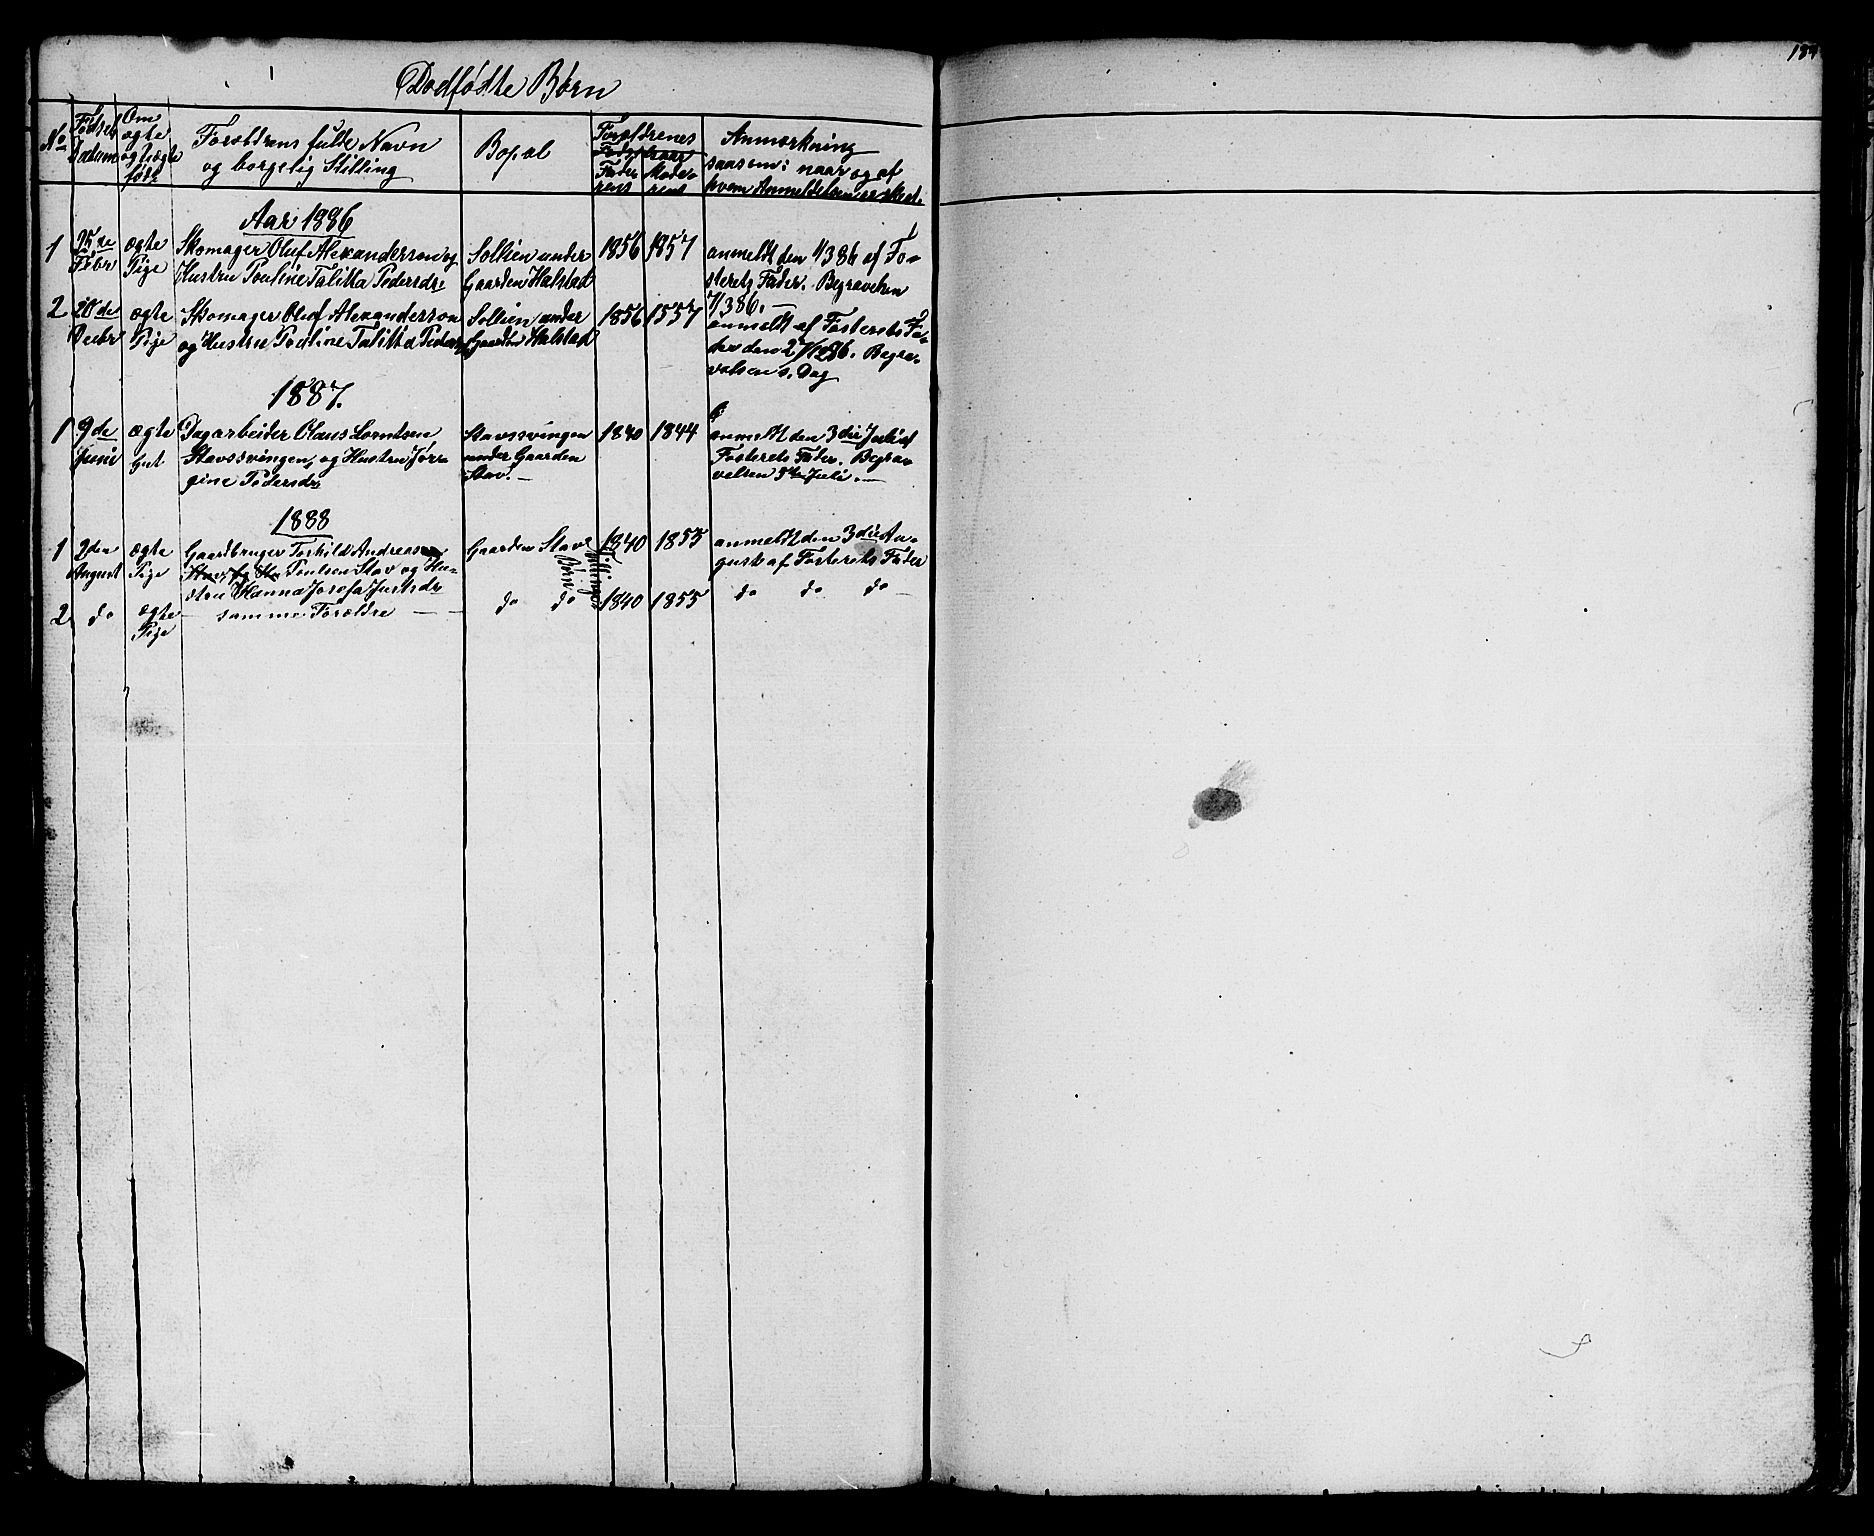 184
Dødfødte Børn
No
Fødsels
Datum
Om
ægte
og uægte
født
Forældrens fulde Navn
og borgelig Stilling
Bopæl
Forældrenes
Fødselsaar
Fade-
rens
Mode-
rens
Anmærkning
saasom: naar og af
hvem Anmeldelsen er skeet.
Aar 1886
1 25de Febr ægte Pige
Skomager Oluf Alexanderson og
Hustru Pouline Talitta Pedersdr
Sollien under
Gaarden Halstad
1856 1857
anmeldt den 1/3 86 af Fo-
sterets Fader. Begravelsen
7/3 86. —
2 20de Decbr ægte Pige
Skomager Oluf Alexanderson
og Hustru Pouline Talitta Pedersdr
Sollien under
Gaarden Halstad
1856 1857
anmeldt af Fosterets Fa-
der den 27/12 86. Begra-
velsen s. Dag
1887.
1 9de Juni ægte Gut
Dagarbeider Olaus Lorntsen
Stavssvingen, og Hustru Jør-
gine Pedersdr
Stavssvingen
under Gaarden
Stav. —
1840 1844
anmeldt den 3die Juli af
Fosterets Fader. Begra-
velsen 3die Juli. —
1888
1 2den August ægte Pige
Gaardbruger Torkild Andreas
Poulsen Stav og Hu-
stru Hanna Josefa Justsdr
Gaarden Stav
Tvillinge
Børn
1840 1855
anmeldt den 3die Au-
gust af Fosterets Fader
2 do ægte Pige
— samme Forældre — —
do do
1840 1855
do do do —